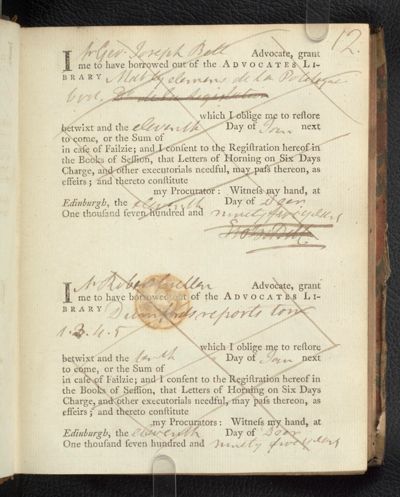 12.
I Mr Geo: Joseph Bell Advocate, grant
me to have borrowed out of the ADVOCATES LI-
BRARY Mably elemens de La Politique
which I oblige me to reſtore
betwixt and the eleventh Day of Jan next
to come, or the Sum of
in caſe of Failzie; and I conſent to the Regiſtration hereof in
the Books of Seſſion, that Letters of Horning on Six Days
Charge, and other executorials needful, may paſs thereon, as
effeirs; and thereto conſtitute
my Procurator: Witneſs my hand, at
Edinburgh, the eleventh Day of Decr
One thouſand ſeven hundred and ninety five years
I Mr Robert Advocate, grant
me to have borrowed out of the ADVOCATES LI-
BRARY Durnfords reports tom
1. 3. 4. 5
which I oblige me to reſtore
betwixt and the tenth Day of Jan next
to come, or the Sum of
in caſe of Failzie; and I conſent to the Regiſtration hereof in
the Books of Seſſion, that Letters of Horning on Six Days
Charge, and other executorials needful, may paſs thereon, as
effeirs; and thereto conſtitute
my Procurators: Witneſs my hand, at
Edinburgh, the eleventh Day of Decr
One thouſand ſeven hundred and ninety five years